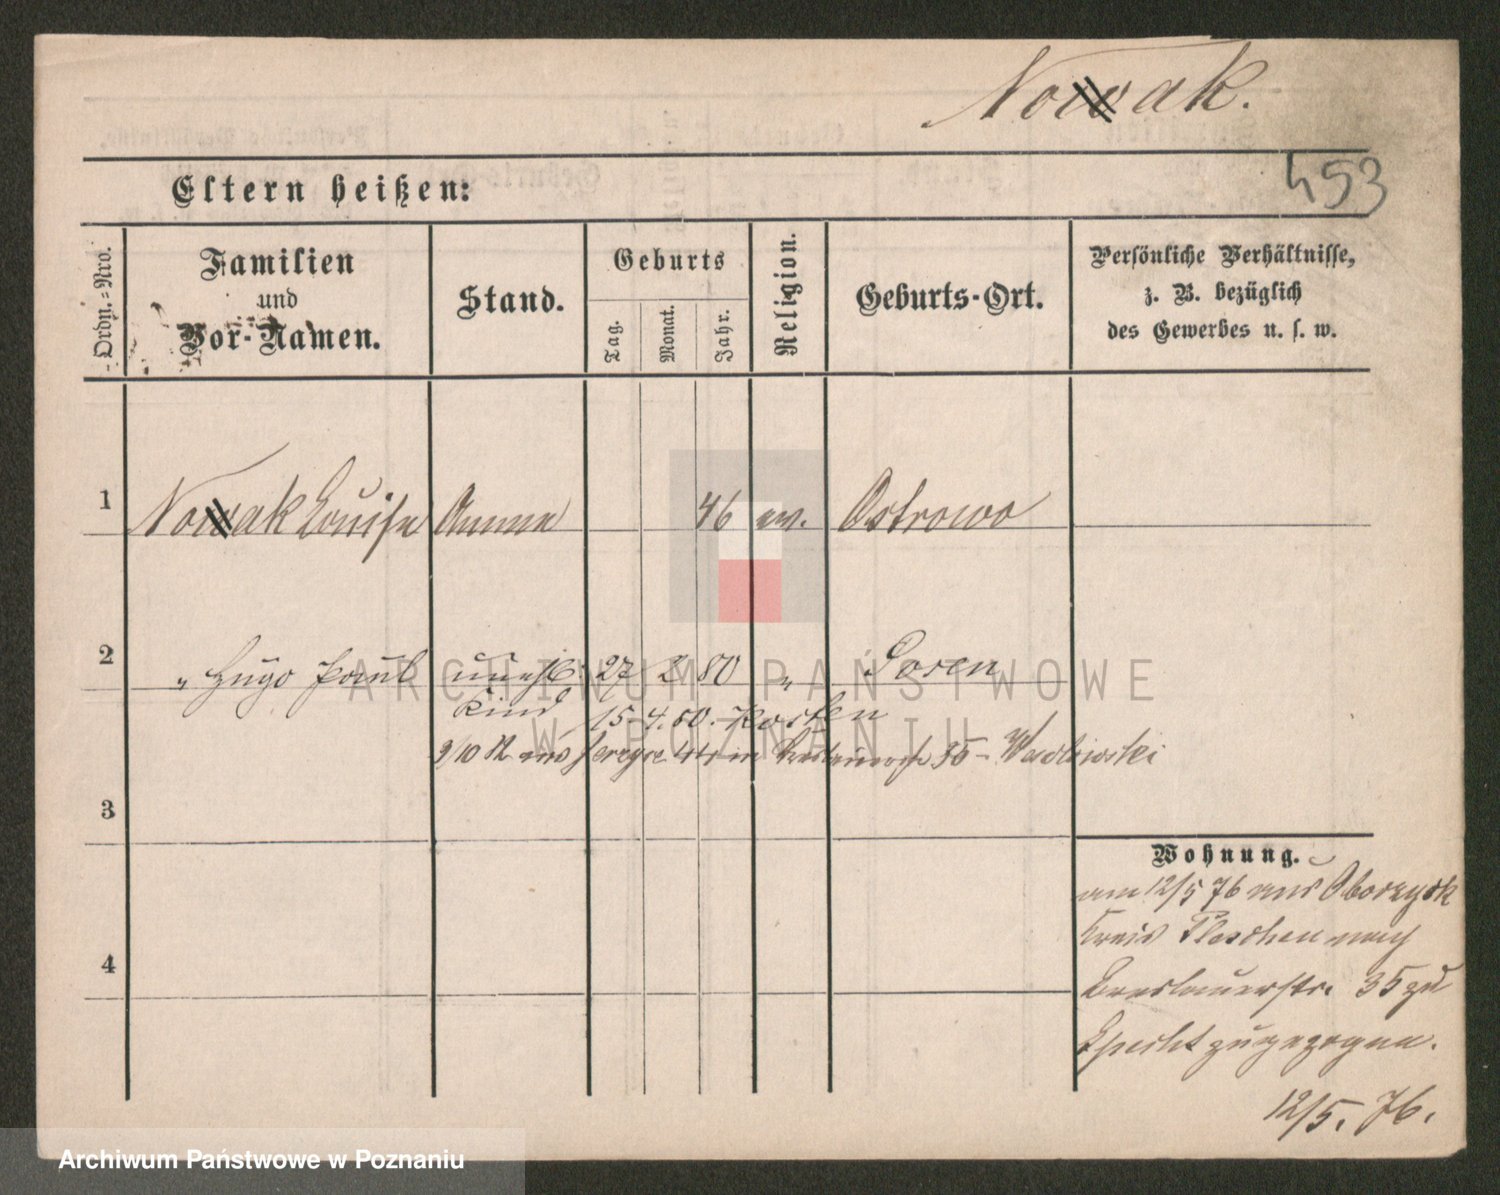 Nowak.
453
Eltern heißen:
Ordn.-Nro.
Familien
und
Vor-Namen.
Stand.
Geburts
Tag.
Monat.
Jahr.
Religion.
Geburts-Ort.
Persönliche Verhältnisse,
z. B. bezüglich
des Gewerbes u. s. w.
1 Nowak Louise Amme 46 ev. Ostrowo
2 " Hugo Paul unehl. 27 2 80 " Posen
Kind 15. 4. 80. Kosten
9/10 aus Jerzyce 44 in Breslauerstr 35 -
3
4
Wohnung.
am 12/5 76 aus
Kreis Pleschen nach
Breslauerstr. 35 zu
Specht zugezogen.
12/5. 76.
ARCHIWUM PAŃSTWOWE
W POZNANIU
Archiwum Państwowe w Poznaniu